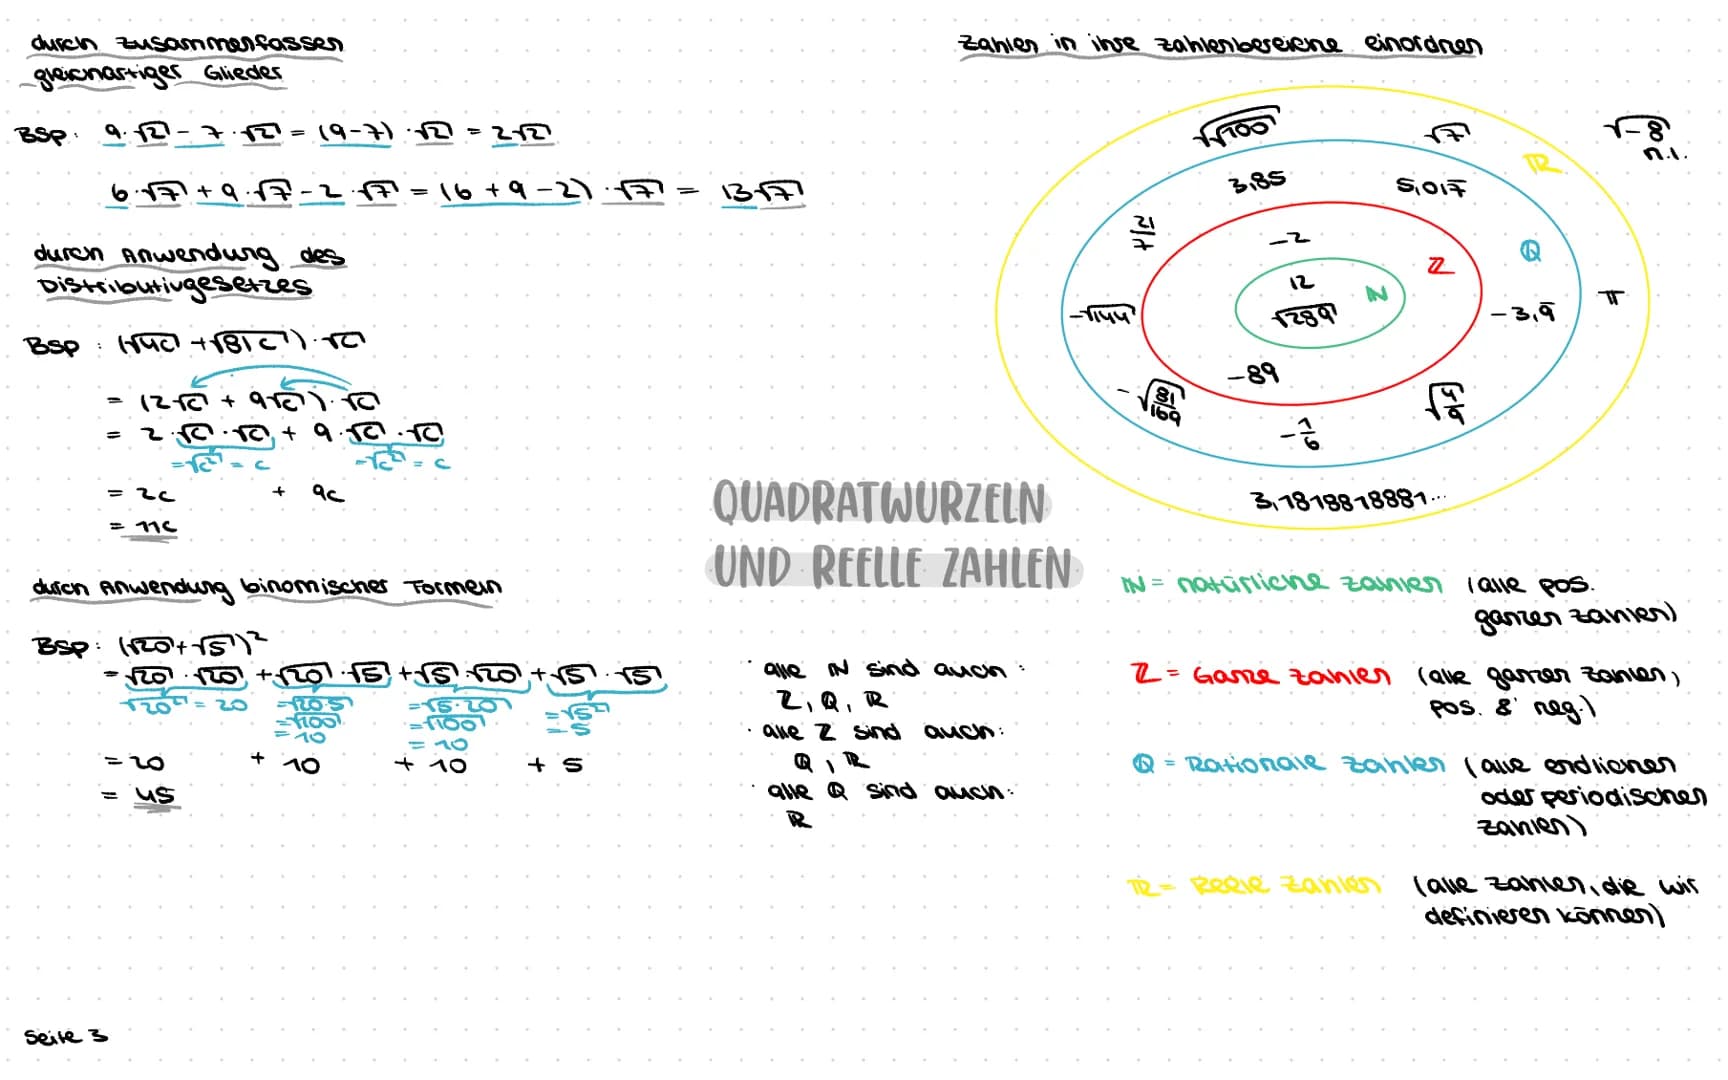 durch zusammenfassen
gleichartiger Glieder
BSP: 9·√2 - 7·√2 = (9-7)·√2 = 2√2
6·√7 + 9·√7 - 2·√7 = (6 + 9 - 2)·√7 = 13√7
durch Anwendung des
Distributivgesetzes
BSP: (√4c + √81c)·√c
= (2√c + 9√c)·√c
= 2·√c·√c + 9·√c·√c
=√c² = c =√c² = c
= 2c + 9c
= 11c
durch Anwendung binomischer Formeln
BSP: (√20+√5)²
= √20·√20 + √20·√5 + √5·√20 + √5·√5
√20² = 20 =√20·5 =√5·20 =√5²
=√100 =√100 = 5
= 10 = 10
= 20 + 10 + 10 + 5
= 45
Seite 3
QUADRATWURZELN
UND REELLE ZAHLEN
· alle ℕ sind auch:
ℤ, ℚ, ℝ
· alle ℤ sind auch:
ℚ, ℝ
· alle ℚ sind auch:
ℝ
Zahlen in ihre Zahlenbereiche einordnen
√√100 √7 √-8
n.l.
ℝ
3,85 5,017̅
21/7 -2 ℤ ℚ
12 ℕ
-√144 √289 -3,9̅ π
-89
-√81/169 √4/9
-1/6
3,1818818881...
ℕ = natürliche Zahlen (alle pos.
ganzen Zahlen)
ℤ = Ganze Zahlen (alle ganzen Zahlen,
pos. & neg.)
ℚ = Rationale Zahlen (alle endlichen
oder periodischen
Zahlen)
ℝ = Reelle Zahlen (alle Zahlen, die wir
definieren können)